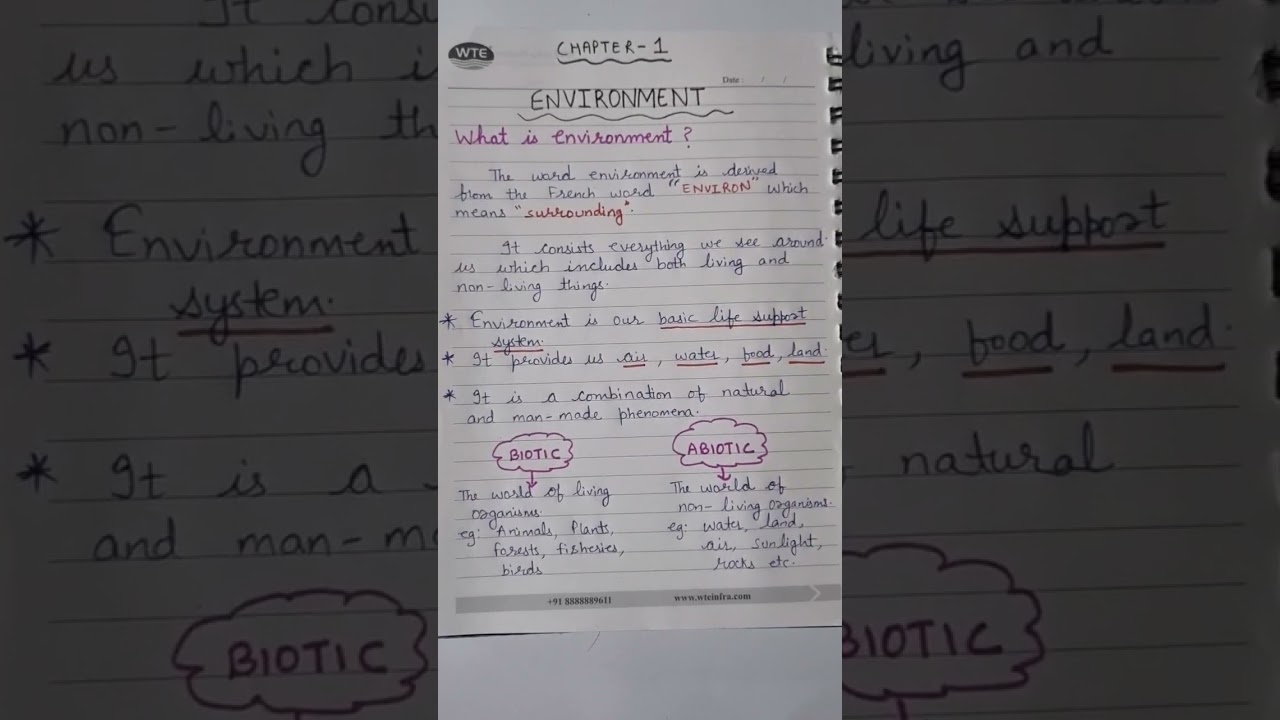 WTE
CHAPTER-1
Date : / /
ENVIRONMENT
What is environment?
The word environment is derived
from the French word "ENVIRON" which
means "surrounding".
It consists everything we see around
us which includes both living and
non-living things.
* Environment is our basic life support
system.
* It provides us air, water, food, land.
* It is a combination of natural
and man-made phenomena.
BIOTIC
The world of living
organisms.
eg: Animals, Plants,
forests, fisheries,
birds
ABIOTIC
The world of
non-living organisms.
eg: water, land,
air, sunlight,
rocks etc.
+91 8888889611
www.wteinfra.com